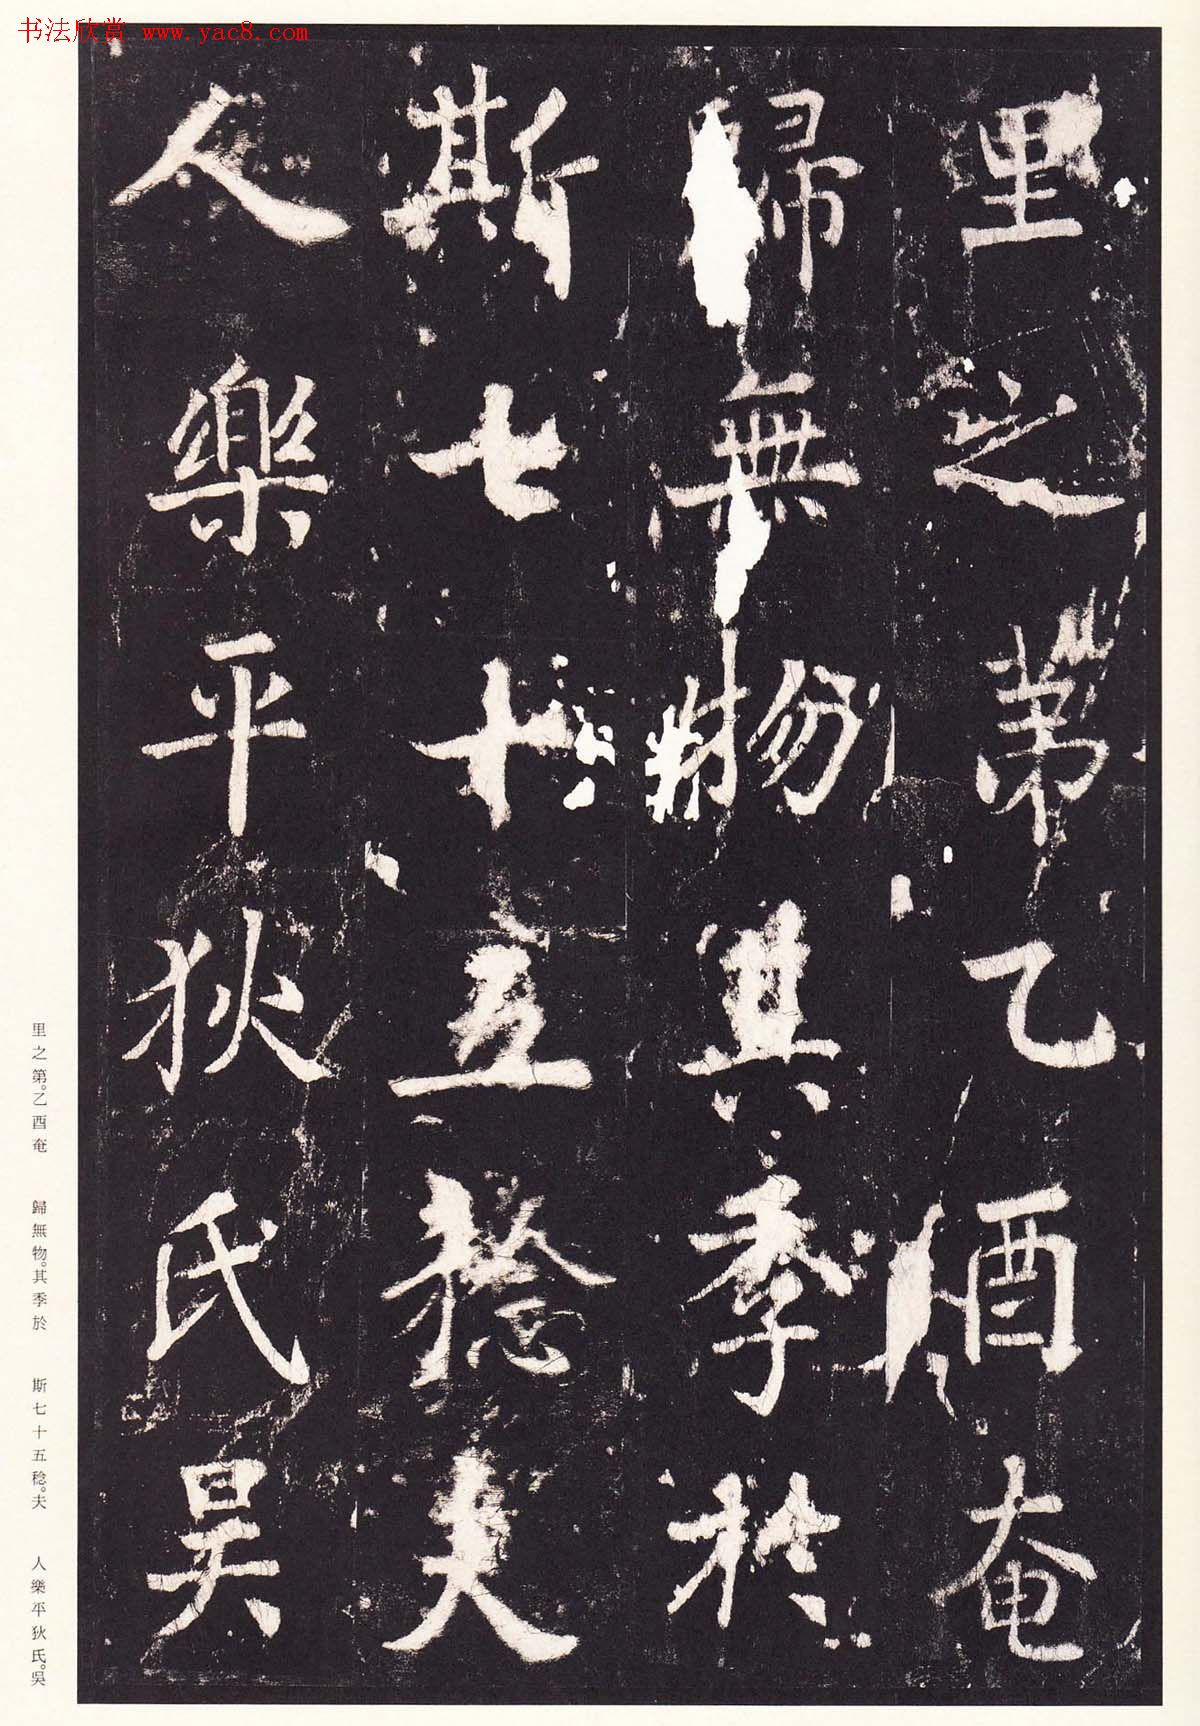 书法欣赏 www.yac8.com
里之第乙酉奄
歸無物其季於
斯七十五稔夫
人樂平狄氏吴
里之第。乙酉奄 歸無物。其季於 斯七十五稔。夫 人樂平狄氏。吳